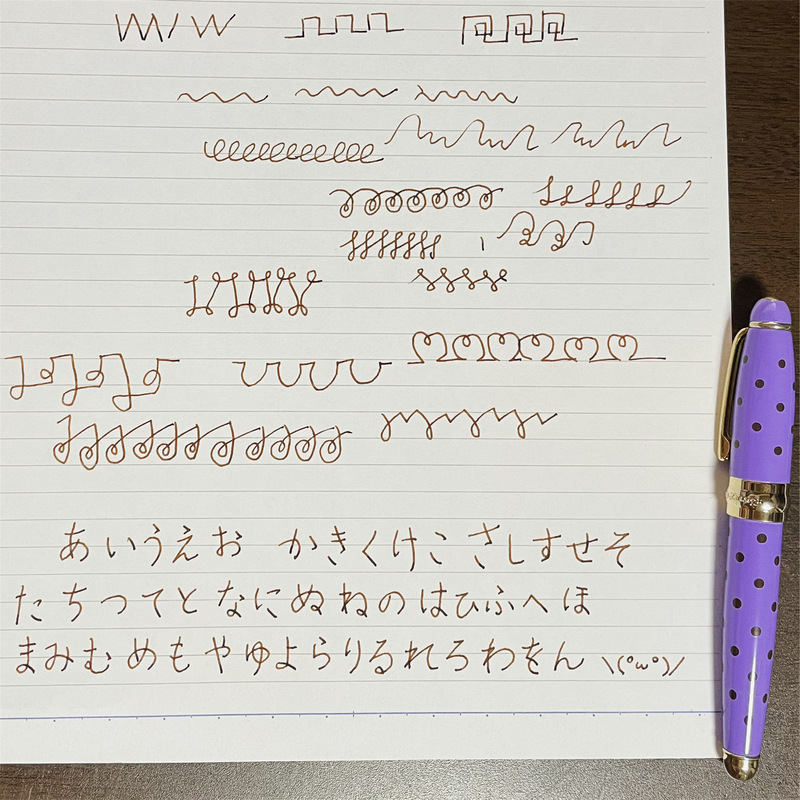 あいうえお かきくけこ さしすせそ
たちつてと なにぬねの はひふへほ
まみむめも やゆよらりるれろわをん \(°ω°)/